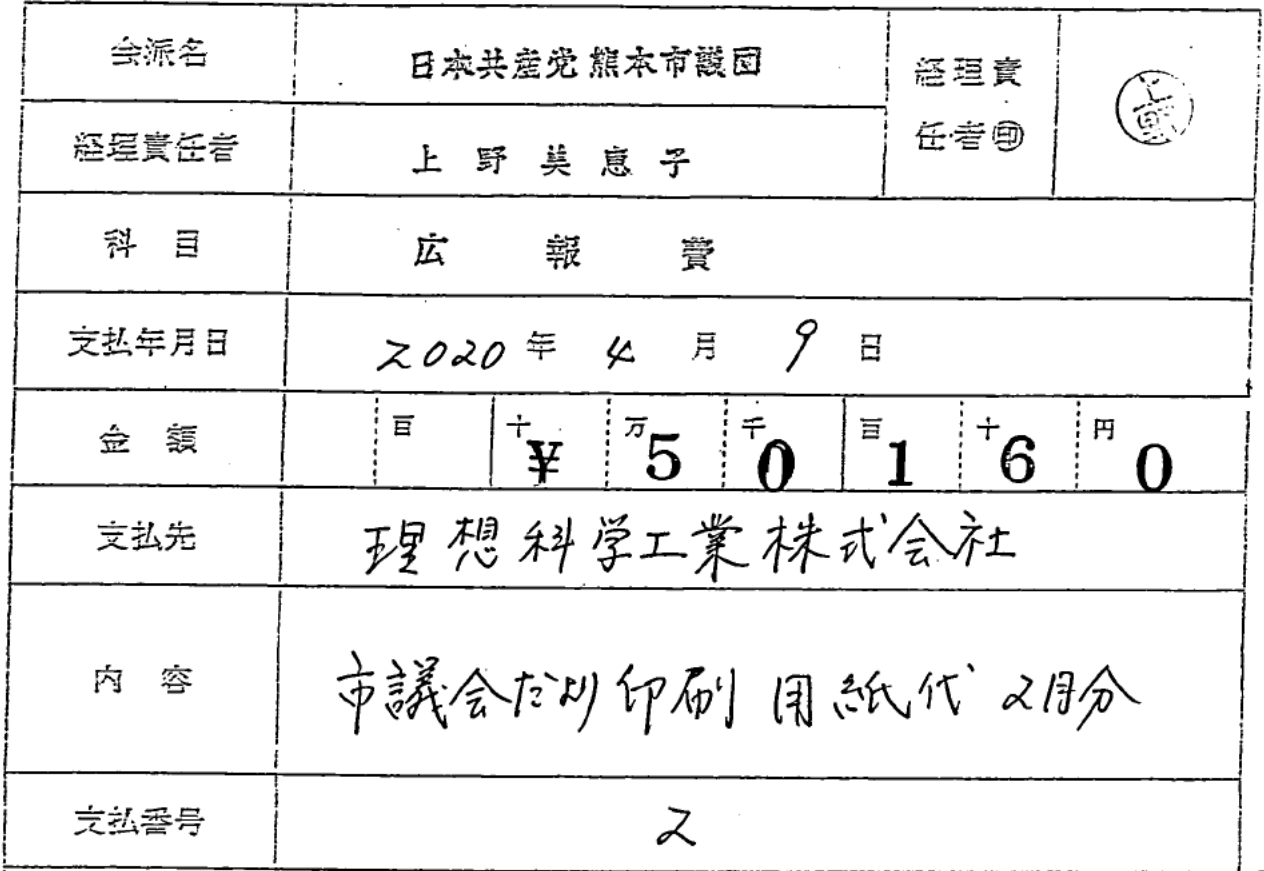 会派名 日本共産党熊本市議団 経理責任者㊞ 上野
経理責任者 上野美恵子
科目 広報費
支払年月日 2020年4月9日
金額 百 十¥ 万5 千0 百1 十6 円0
支払先 理想科学工業株式会社
内容 市議会だより印刷用紙代 2月分
支払番号 2